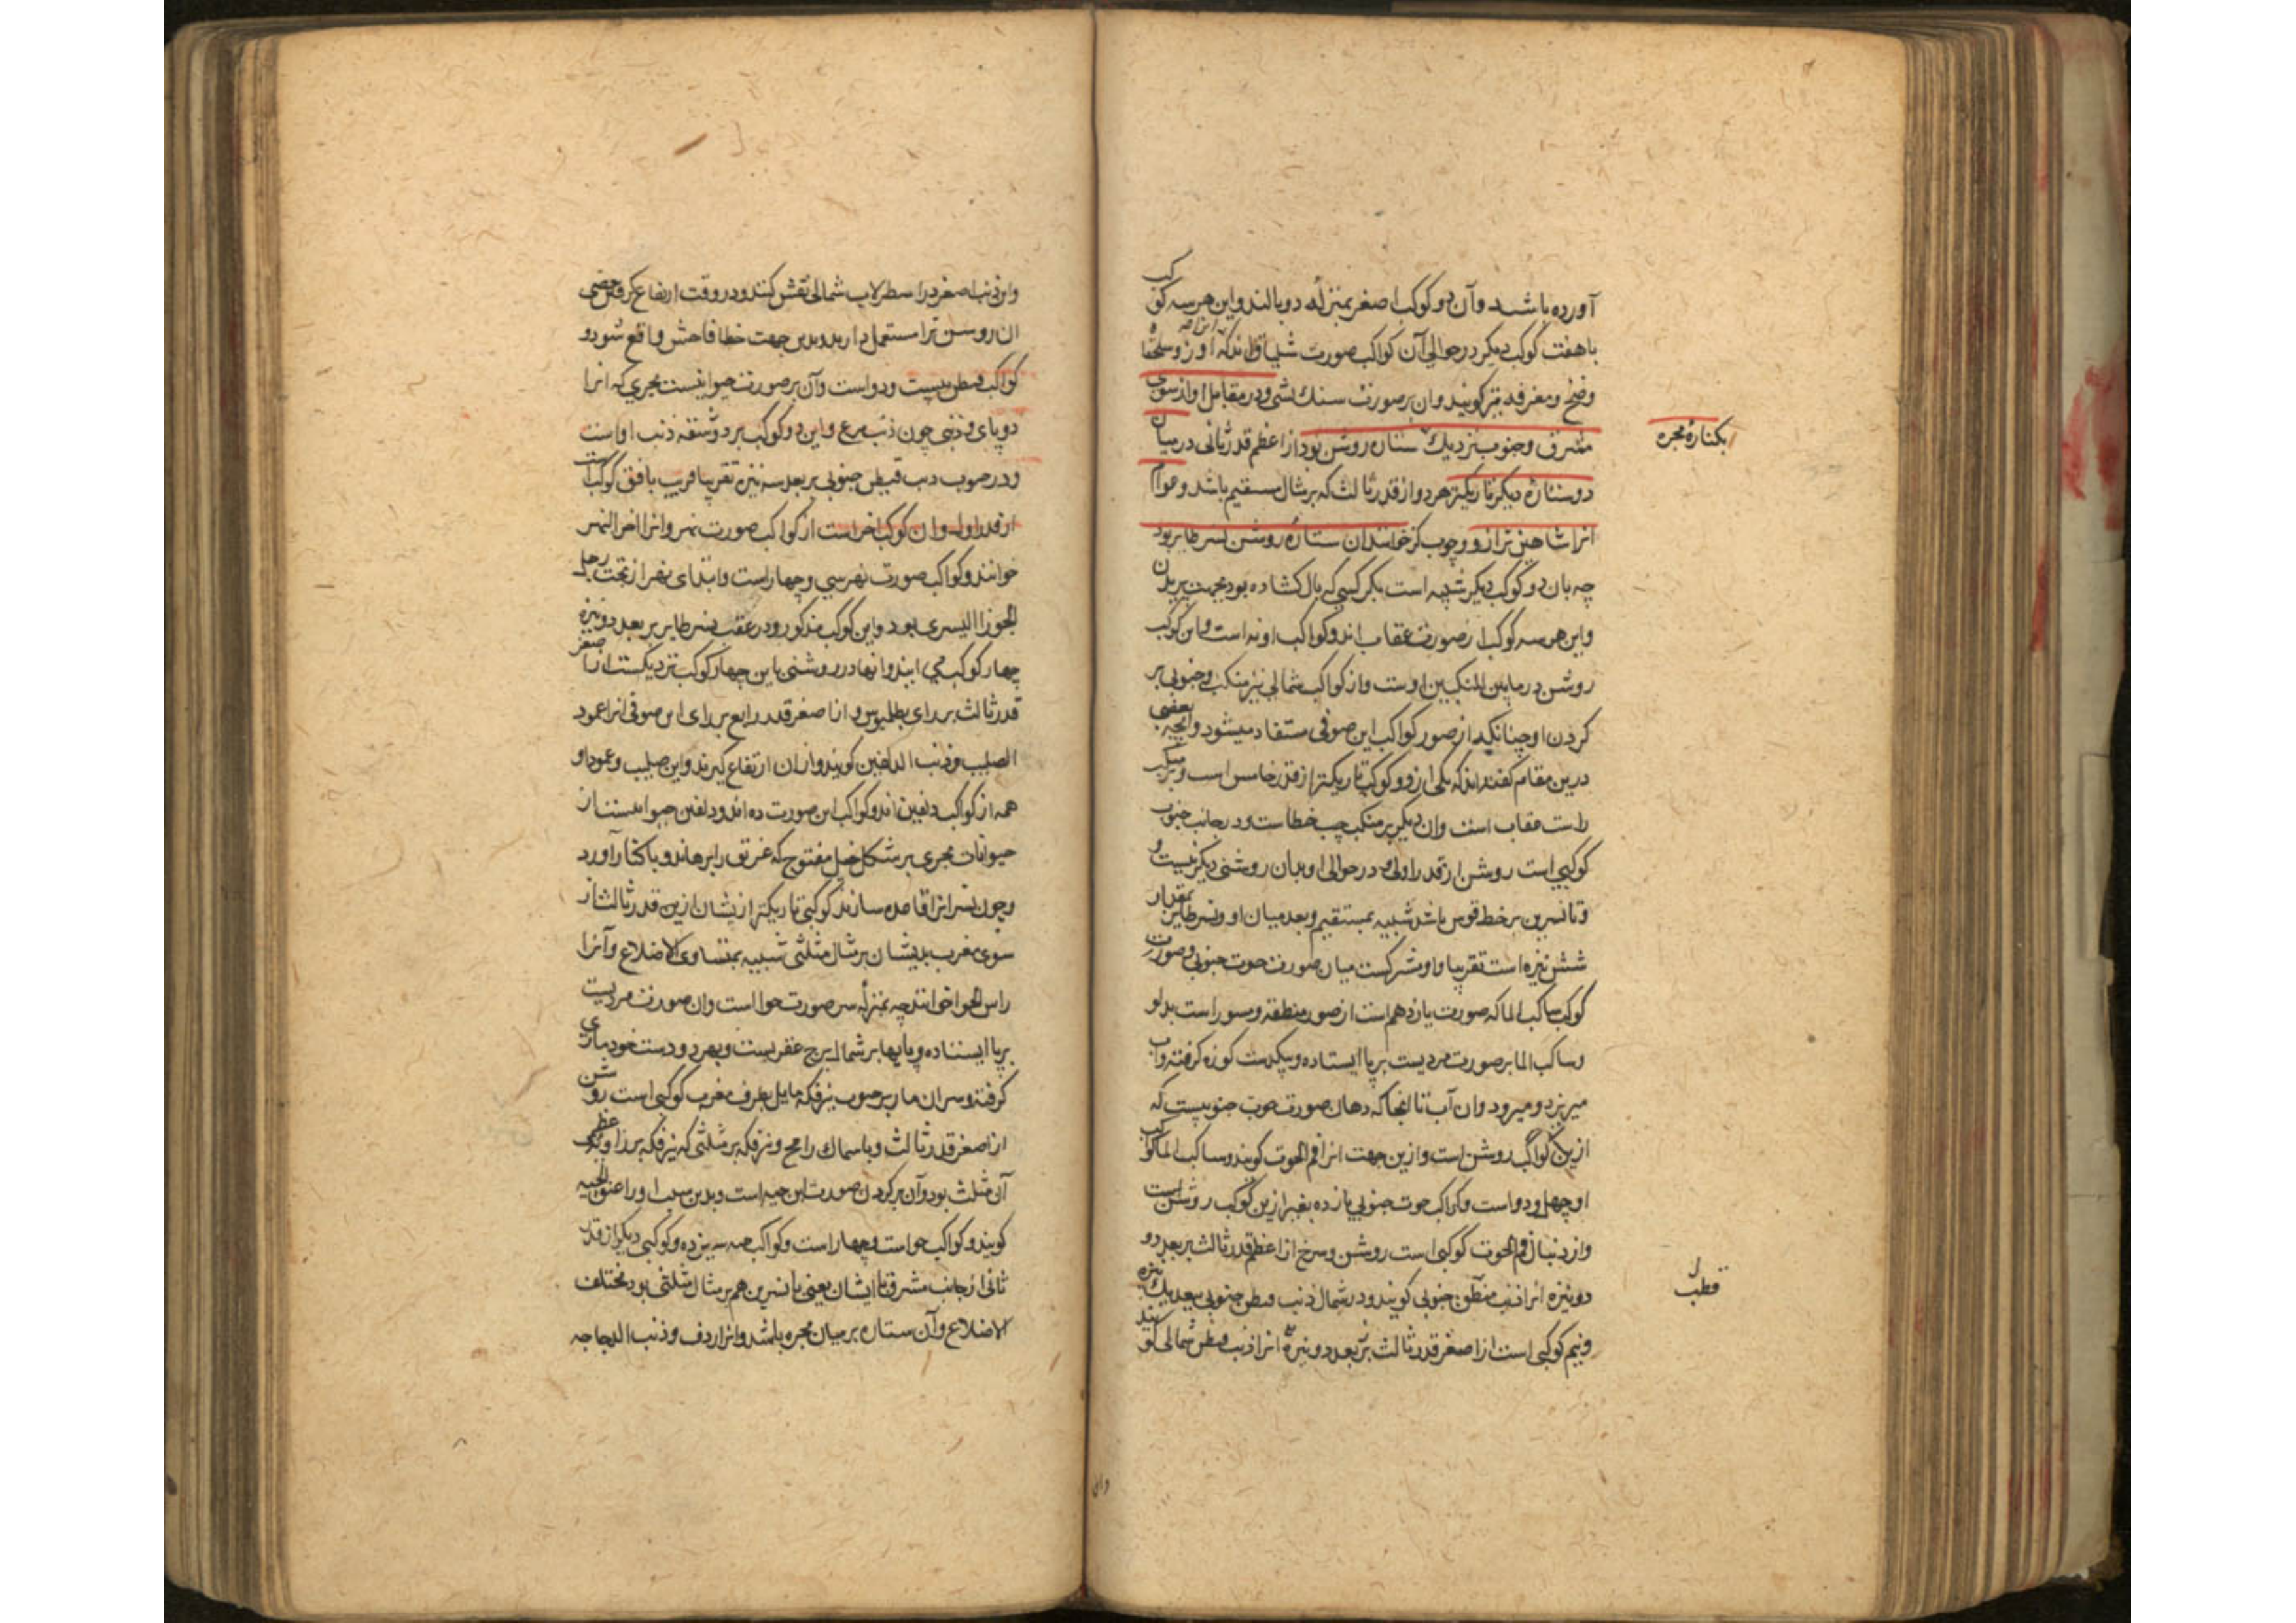 آورده باشد وآن دو کوکب اصغر بمنزلهٔ دو بالند واین هر سه کوکب
با هفت کوکب دیکر در حوالی آن کواکب صورت شلیاق اند که آنرا اوز وسلحفاة
ومعرفه نیز کویند وآن بر صورت سنك پشتی ودر مقابل او از سوی
مشرق وجنوب نزدیك ستاره روشن بود از اعظم قدر ثانی در میان
بکنارهٔ مجره
دو ستارهٔ دیکر تاریکتر هر دو از قدر ثالث که بر مثال مستقیم باشد وعوام
انرا شاهین ترازو وچوب کز خوانند ان ستارهٔ روشن نسر طایر بود
چه بان دو کوکب دیکر شبیه است بکرکسی که بال کشاده بود بجهت پریدن
واین هر سه کوکب از صورت عقاب اند وکواکب او نه است واین کوکب
روشن در مابین المنکبین اوست واز کواکب شمالی نیز منکب وجنوبی بر
کردن او چنانکه از صور کواکب ابن صوفی مستفاد میشود وآنچه بعضی
درین مقام کفته اند که یکی ازو دو کوکب تاریکتر از قدر خامس است وبر منکب
راست عقاب است وان دیکر بر منکب چپ خطاست ودر جانب جنوب
کوکبی است روشن از قدر اول ودر حوالی او بدان روشنی دیکر نیست و
وتا نسرین بر خط قوس باشد شبیه بمستقیم وبعد میان او ونسر طایر بمقدار
شش نیزه است تقریبا واو مشترکست میان صورت حوت جنوبی وصورت
کوکب ساکب الما که صورت یازدهم است از صور منطقه ومسوراست بدلو
وساکب الما بر صورت مردیست بر پا ایستاده وبیکدست کوزه کرفته وآب
میریزد ومیرود وان آب تا انجا که دهان صورت حوت جنوبیست که
ازین کواکب روشن است وازین جهت انرا فم الحوت کویند وساکب الما کواکب
او چهل ودو است وکواکب حوت جنوبی یازده بغیر ازین کوکب روشن است
واز دنبال فم الحوت کوکبی است روشن وسرخ از اعظم قدر ثالث بر بعد دو
دو نیزه انرا ذنب قیطس جنوبی کویند ودر شمال ذنب قیطس جنوبی ببعد یك نیزه
قیطس
ونیم کوکبی است از اصغر قدر ثالث بر بعد دو نیزه انرا ذنب قیطس شمالی کویند
واین ذنب اصغر در اسطرلاب شمالی نقش کنند ودر وقت ارتفاع کرفتن بعضی
ان روشن ترا مستعمل دارند وبدین جهت خطا فاحش واقع شود و
کواکب قیطس بیست ودو است وآن بر صورت حیوانیست بحری که انرا
دو پای وذنبی چون ذنب مرغ واین دو کوکب بر دو شقه ذنب اواست
ودر صوب ذنب قیطس جنوبی بر بعد سه نیزه تقریبا قریب بافق کوکبیست
از قدر اول وان کوکب اخر است از کواکب صورت نهر وانرا اخر النهر
خوانند وکواکب صورت نهر سی وچهار است وابتدای نهر از تحت رجل
الجوزا الیسری بود واین کوکب مذکور ودر عقب نسر طایر بر بعد دو نیزه
چهار کوکب می ایند وانها در روشنی باین چهار کوکب نزدیکست از اصغر
قدر ثالث بر رای بطلمیوس واز اصغر قدر رابع بر رای ابن صوفی انرا عمود
الصلیب وذنب الدلفین کویند وازان ارتفاع کیرند واین صلیب وعمود او
همه از کواکب دلفین اند وکواکب این صورت ده اند ودلفین حیوانیست از
حیوانات بحری بر شکل خیك منفوخ که غریق را برهاند وبا کنار آورد
وچون نسر انرا قاعده سازند کوکبی تاریکتر از یشان ازین قدر ثالث از
سوی مغرب بدیشان بر مثال مثلثی شبیه بمتساوی الاضلاع وآنرا
راس الحوا خوانند چه بمنزلهٔ سر صورت حوا است وان صورت مردیست
بر پا ایستاده وپایها بر شمال برج عقربست وبهر دو دست خود ماری
کرفته وسر ان مار بر صوب نیر فکه مایل بطرف مغرب کوکبی است روشن
از اصغر قدر ثالث وبا سماك رامح ونیر فکه بر مثلثی که نیر فکه بر زاویه عظمی
آن مثلث بود وآن بر کردن صورت این حیه است وبدین سبب او را عنق الحیه
کویند وکواکب حواست وچهار است وکواکب حیه سیزده وکوکبی دیکر از قدر
ثانی از جانب مشرق با ایشان یعنی با نسرین هم بر مثال مثلثی بود مختلف
الاضلاع وآن ستاره بر میان مجره باشد وانرا ردف وذنب الدجاجه